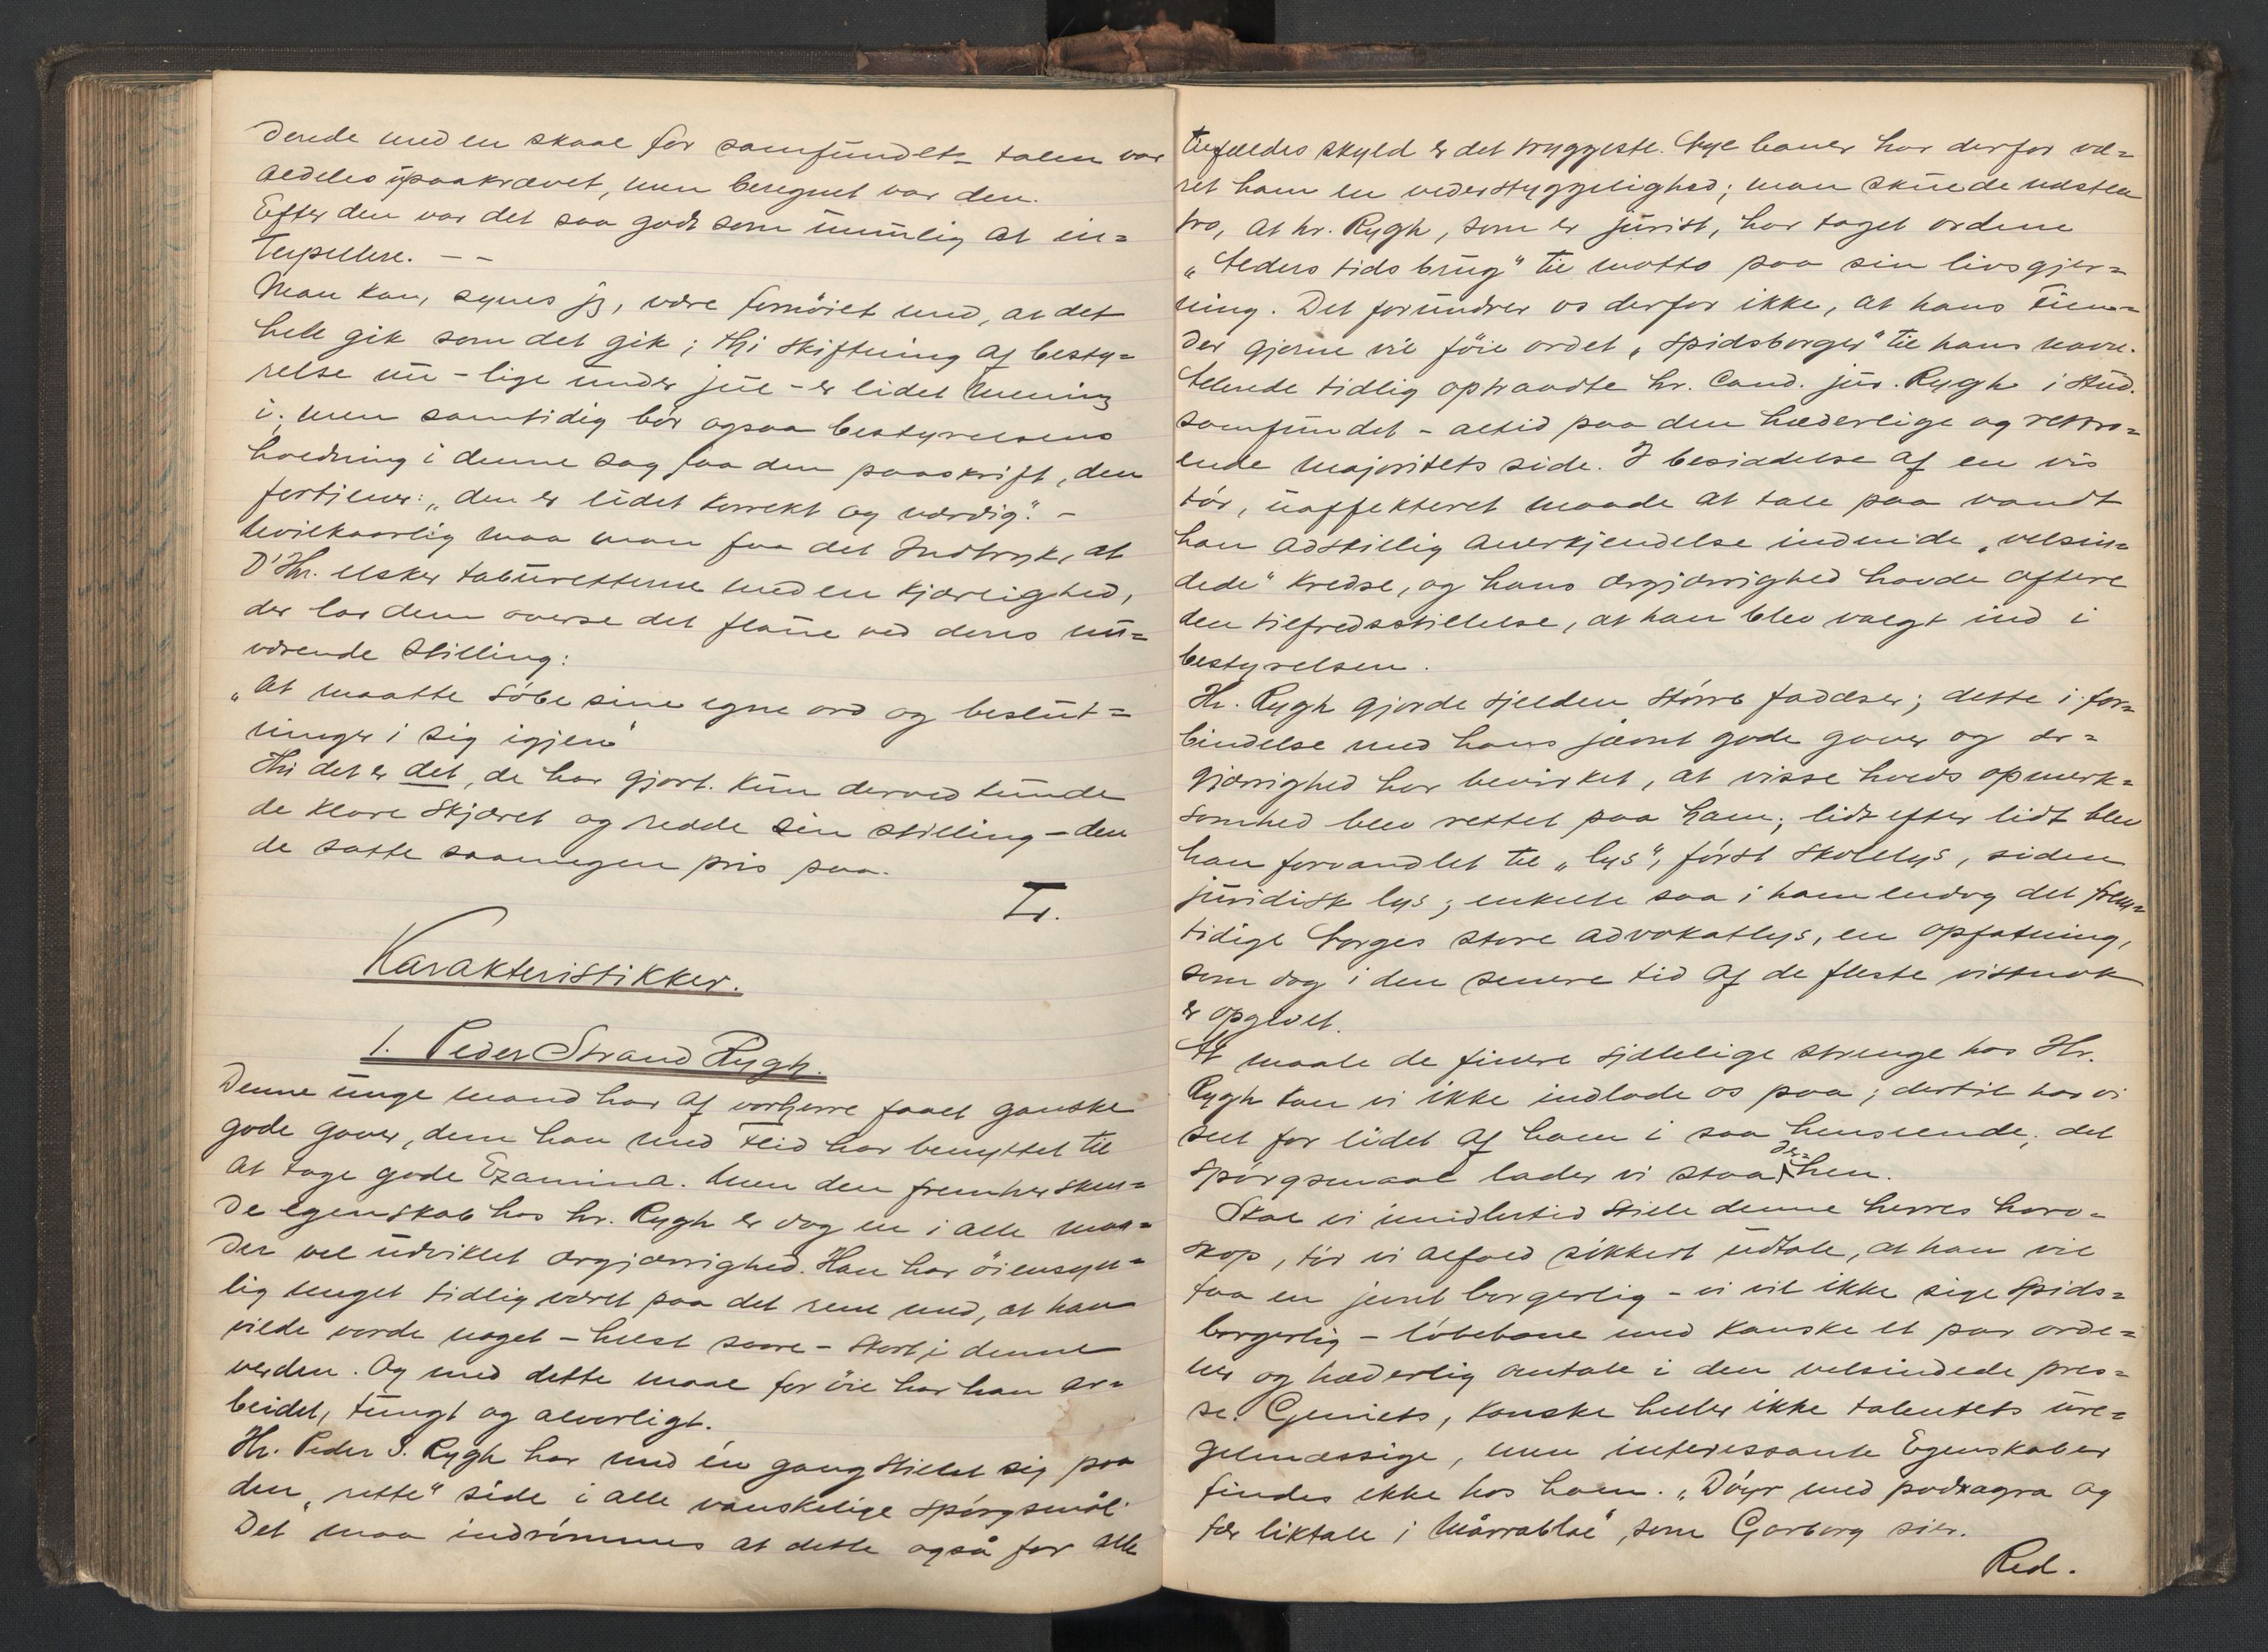 derede med en skaal for samfundet – talen var
aldeles upaakrævet, men beregnet var den.
Efter den var det saa godt som umulig at in=
terpellere. – –
Man kan, synes jeg, være fornöiet med, at det
hele gik som det gik; thi skiftning af besty=
relse nu – lige under jul – er lidet mening
i; men samtidig bör ogsaa bestyrelsens
holdning i denne sag faa den paaskrift, den
fortjener: „den er lidet korrekt og værdig“. –
Uvilkaarlig maa man faa det Indtryk, at
D'Hr. elsker taburetterne med en kjærlighed,
der lar dem overse det flaue ved deres nu=
værende Stilling:
„At maatte söbe sine egne ord og beslut=
ninger i sig igjen“
Thi det er det, de har gjort. Kun derved kunde
de klare Skjæret og redde sin stilling – den
de satte saamegen pris paa.
Karakteristikker.
1. Peder Strand Rygh.
Denne unge mand har af vorherre faaet ganske
gode gaver, dem han med Flid har benyttet til
at tage gode Examina. Men den fremhersken=
de egenskab hos hr. Rygh er dog en i alle maa=
der vel udviklet ærgjærrighed. Han har öiensyn=
lig meget tidlig været paa det rene med, at han
vilde vorde noget – helst saare – Stort i denne
verden. Og med dette maal for öie har han ar=
beidet, tungt og alvorligt.
Hr. Peder S. Rygh har med én gang stillet sig paa
den „rette“ side i alle vanskelige spörgsmål.
Det maa indrömmes at dette også for alle
tilfældes skyld er det tryggeste. Nye baner har derfor væ=
ret ham en vederstyggelighed; man skulde næsten
tro, at hr. Rygh, som er jurist, har taget ordene
„Alders tids brug“ til motto paa sin livsgjer=
ning. Det forundrer os derfor ikke, at hans Fien=
der gjerne vil föie ordet „Spidsborger“ til hans navn.
Allerede tidlig optraadte hr. Cand. jur. Rygh i Stud.
samfundet – altid paa den hæderlige og rettro=
ende majoritets side. I besiddelse af en vis
tör, uaffekteret maade at tale paa vandt
han adskillig anerkjendelse inden de „velsin=
dede“ kredse, og hans ærgjærrighed havde oftere
den tilfredsstillelse, at han blev valgt ind i
bestyrelsen.
Hr. Rygh gjorde sjelden större fadæser; dette i for=
bindelse med hans jævnt gode gaver og ær=
gjærrighed har bevirket, at visse holds opmerk=
somhed blev rettet paa ham; lidt efter lidt blev
han forvandlet til „lys“, först skolelys, siden
juridisk lys; enkelte saa i ham endog det frem=
tidige Norges store advokatlys, en opfatning,
som dog i den senere tid af de fleste vistnok
er opgivet.
At maale de finere sjælelige strenge hos Hr.
Rygh kan vi ikke indlade os paa; dertil har vi
seet for lidet af ham i saa henseende; det
spörgsmaal lader vi staa der=hen.
Skal vi imidlertid stille denne herres horo=
skop, tör vi alfald sikkert udtale, at han vil
faa en jevnt borgerlig – vi vil ikke sige spids=
borgerlig – löbebane med kanske et par orde=
ner og hæderlig omtale i den velsindede pres=
se. Geniets, kanske heller ikke talentets ure=
gelmæssige, men interessante Egenskaber
findes ikke hos ham. „Döyr med podragra og
fær liktale i Mårrablae“, som Garborg sier.
Red.